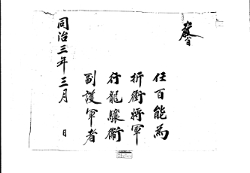 任百能爲
折衝將軍
行龍驤衛
副護軍者
同治三年三月 日